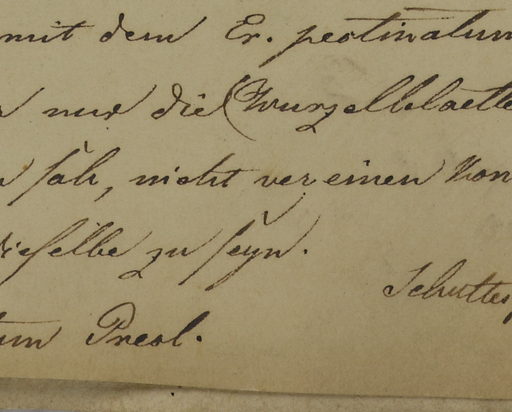 mit dem Er. pectinatum
nur die Wurzelblaette
sah, nicht vereinen kon
dieselbe zu seyn.
Schultes
um Presl.